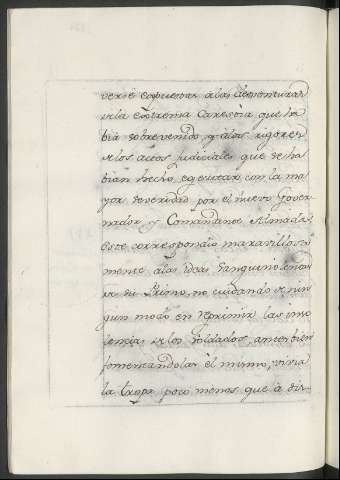 verse expuestas a las desventuras
de la extrema Carestia que ha
bia sobrevenido, y a los rigores
de los actos judiciales que se ha
bian hecho egecutar con la ma
yor severidad por el nuevo Gover
nador, y Comandante Almada,
Este correspondio maravillosa
mente a las ideas sanguinolentas
de su Primo, no cuidando de nin
gun modo en reprimir las inso
lencias de los soldados, antes bien
fomentandolas él mismo, vivia
la tropa poco menos que à dis-